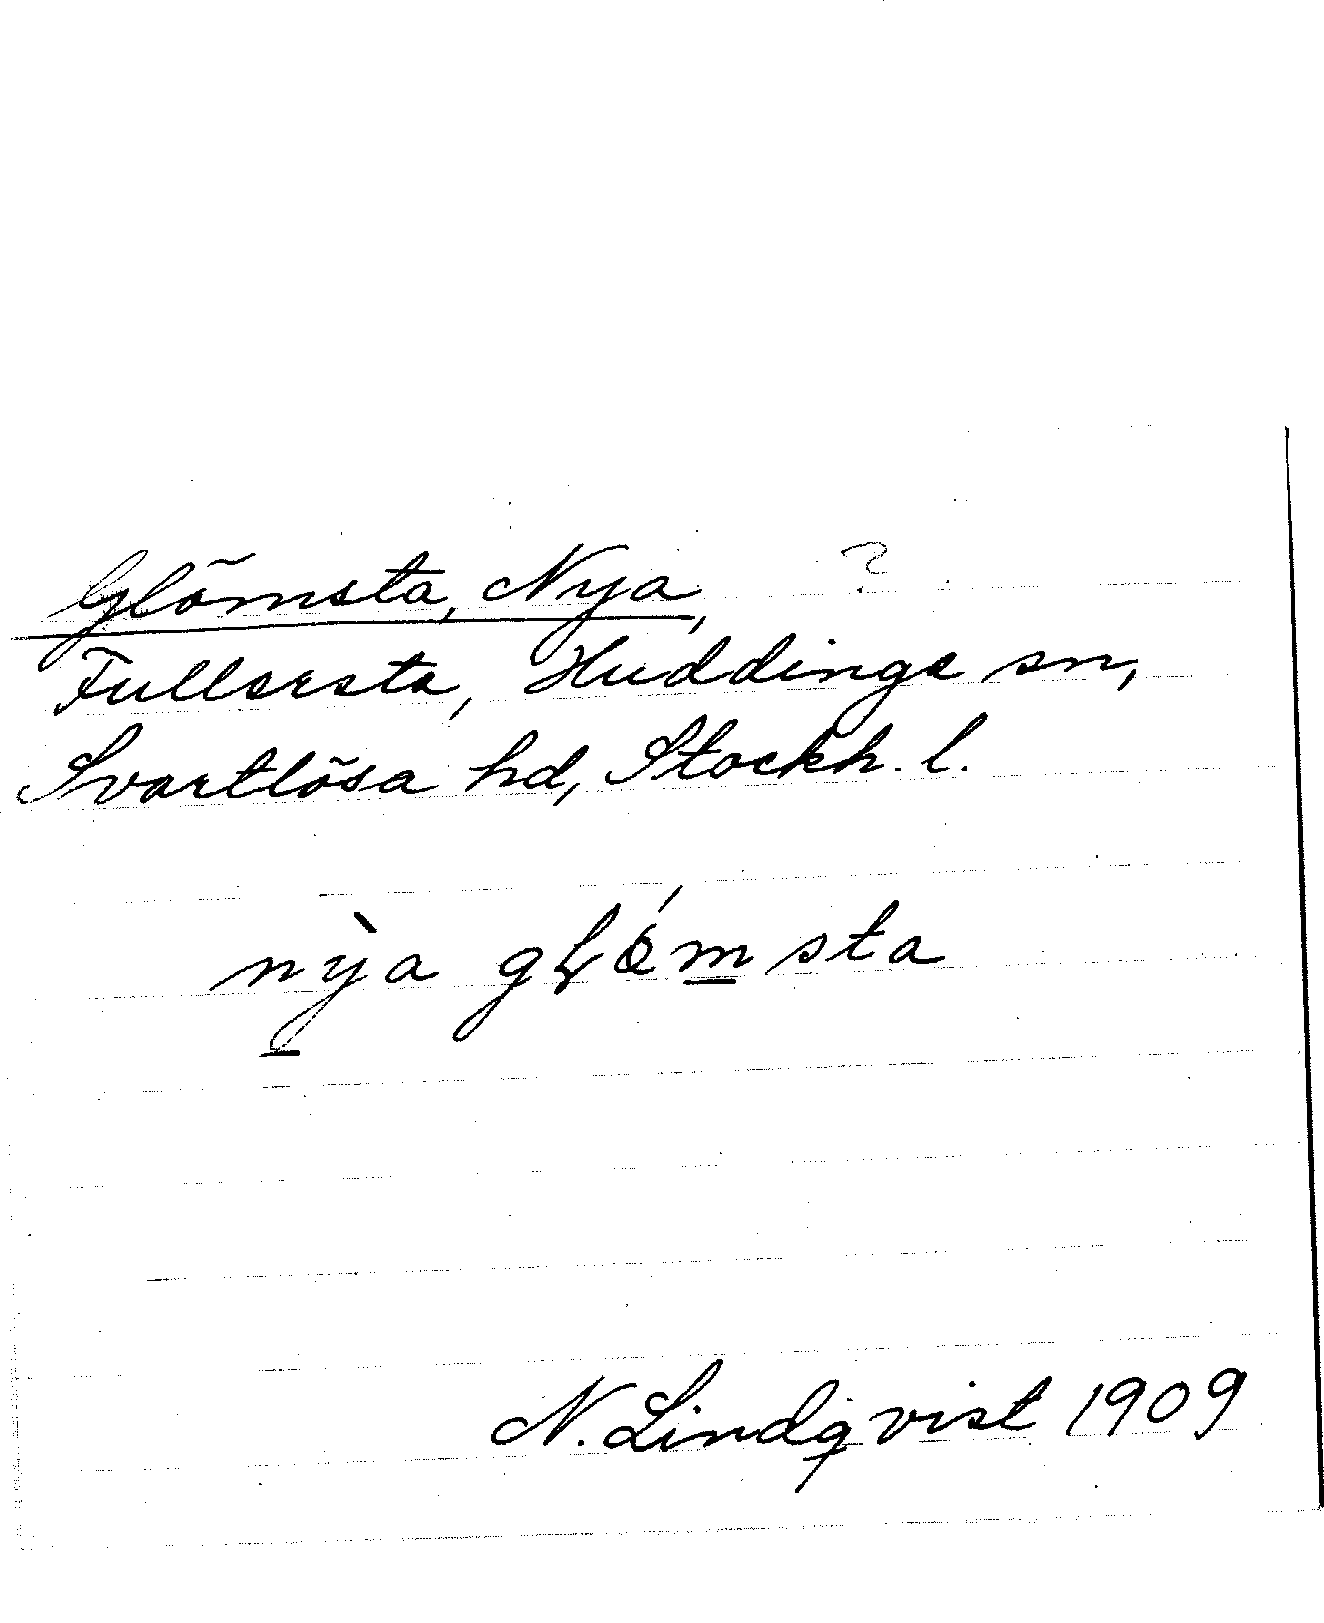 Glömsta, Nya, ?
Fullersta, Huddinge sn,
Svartlösa hd, Stockh. l.
nỳa gɫǿmsta
N. Lindqvist 1909